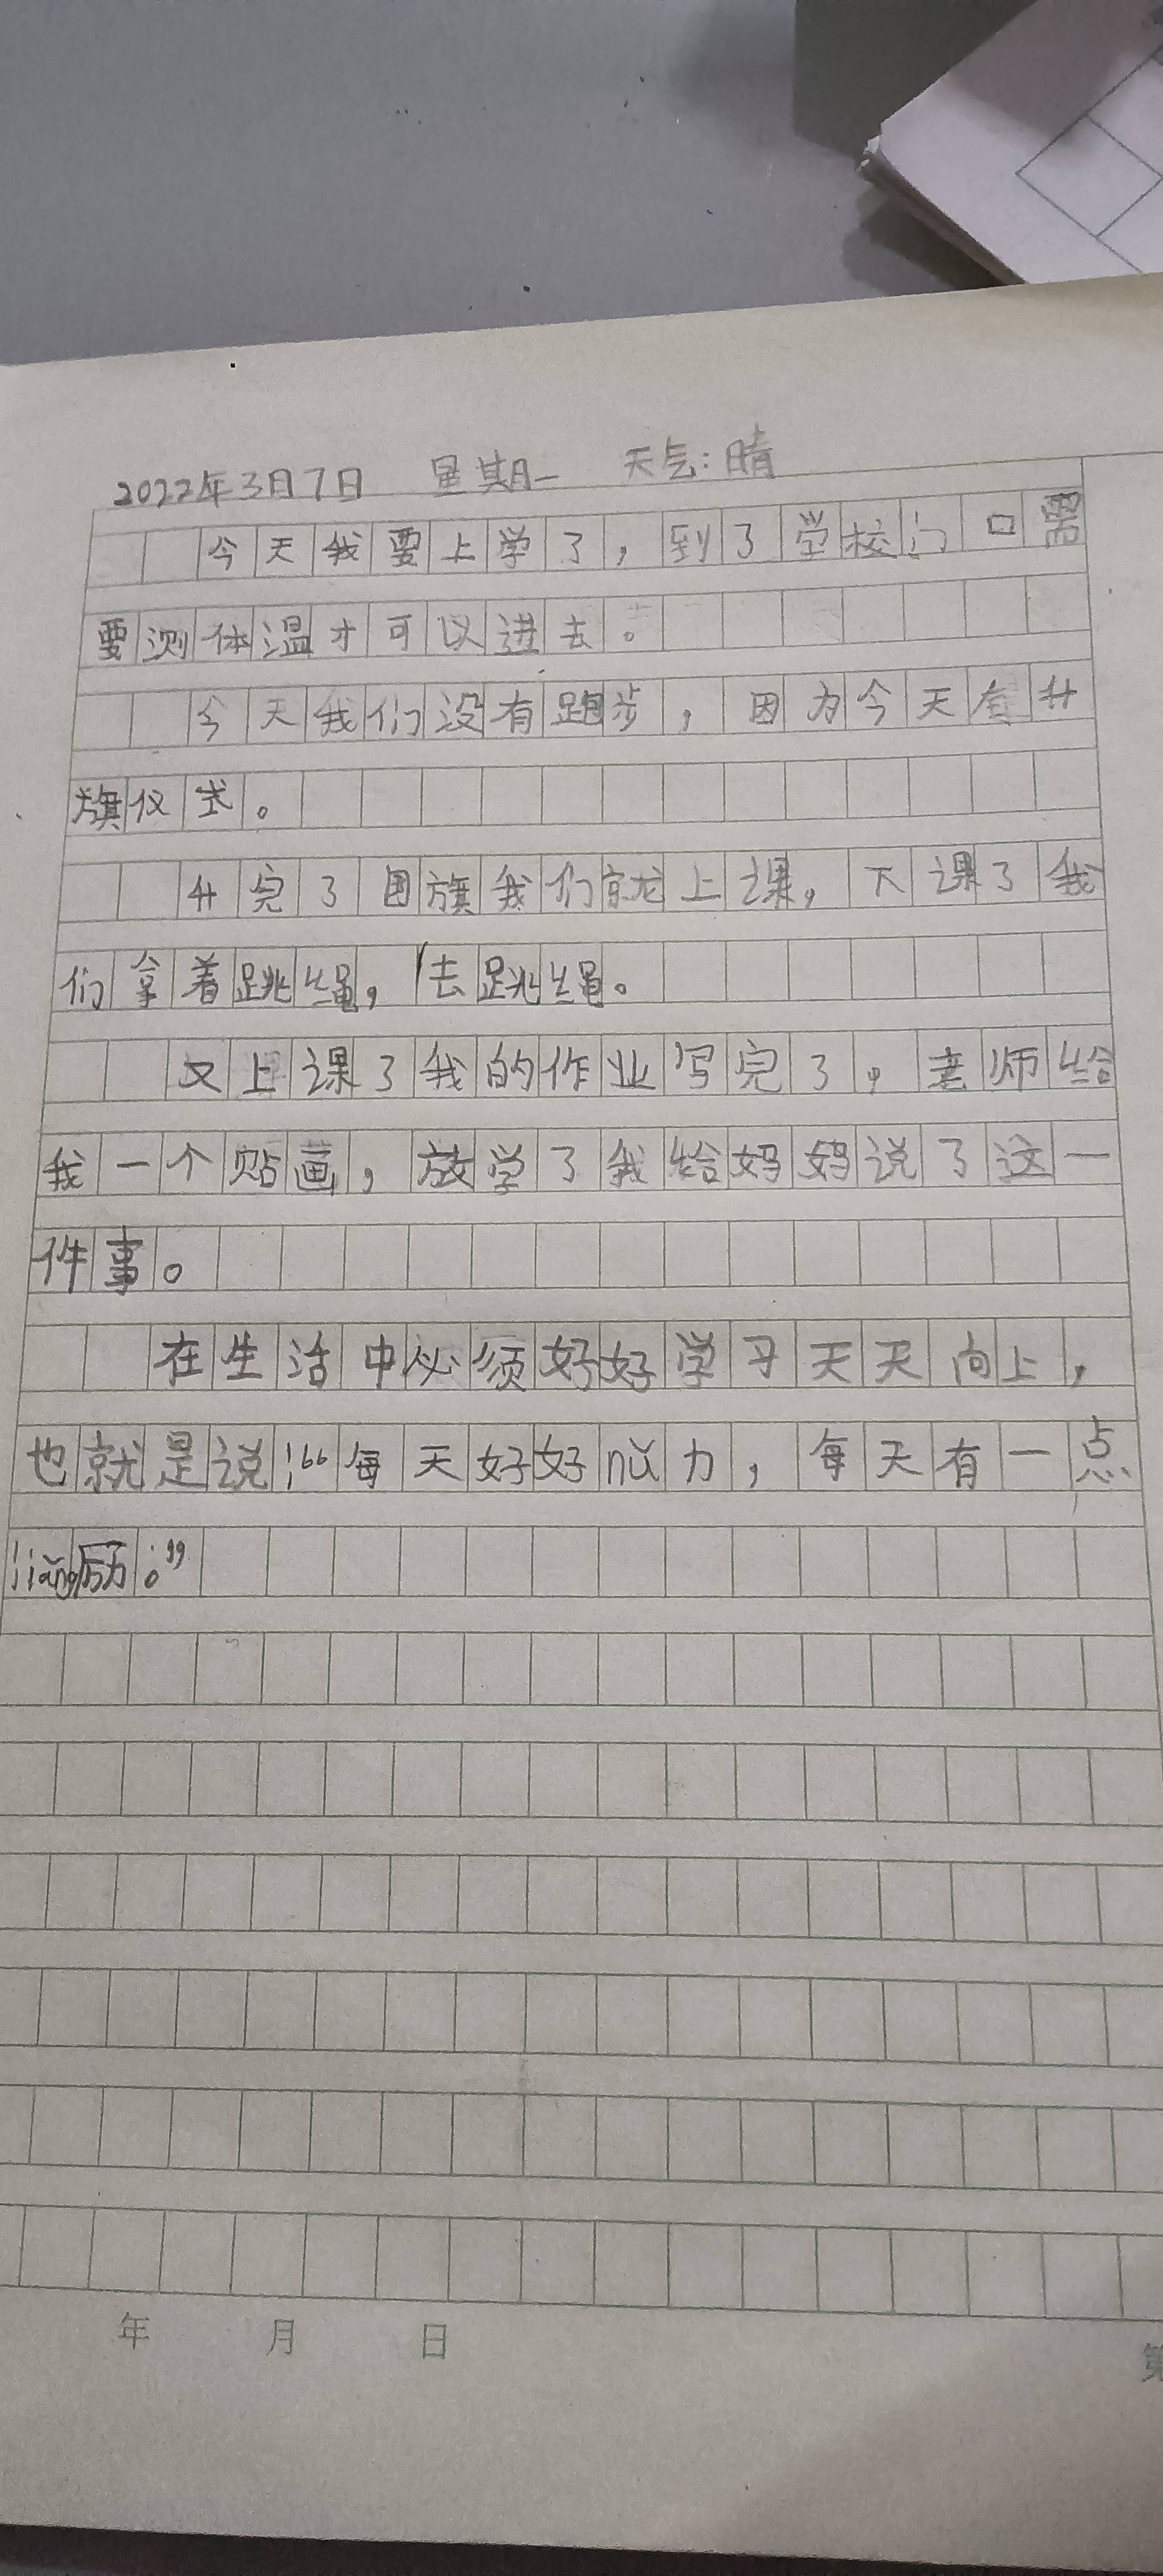 2022年3月7日 星期一 天气:晴
今天我要上学了,到了学校门口需
要测体温才可以进去。
今天我们没有跑步,因为今天有升
旗仪式。
升完了国旗我们就上课,下课了我
们拿着跳绳,去跳绳。
又上课了我的作业写完了,老师给
我一个贴画,放学了我给妈妈说了这一
件事。
在生活中必须好好学习天天向上,
也就是说:“每天好好nǔ力,每天有一点
jiǎng励。”
年 月 日
第